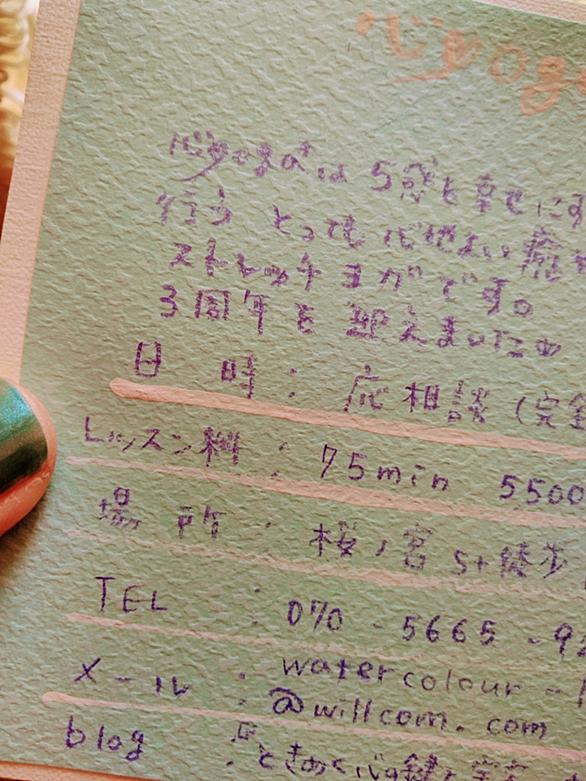 心夢yog
心夢よがは 5感を幸せにす
行う とっても心地よい癒
ストレッチヨガです。
3周年を迎えました
日 時 : 応相談 (完全
レッスン料 : 75min 5500
場 所 : 桜ノ宮 St 徒歩
TEL : 070 - 5665 - 92
メール : watercolour -
@willcom.com
blog : ときめく心の鍵